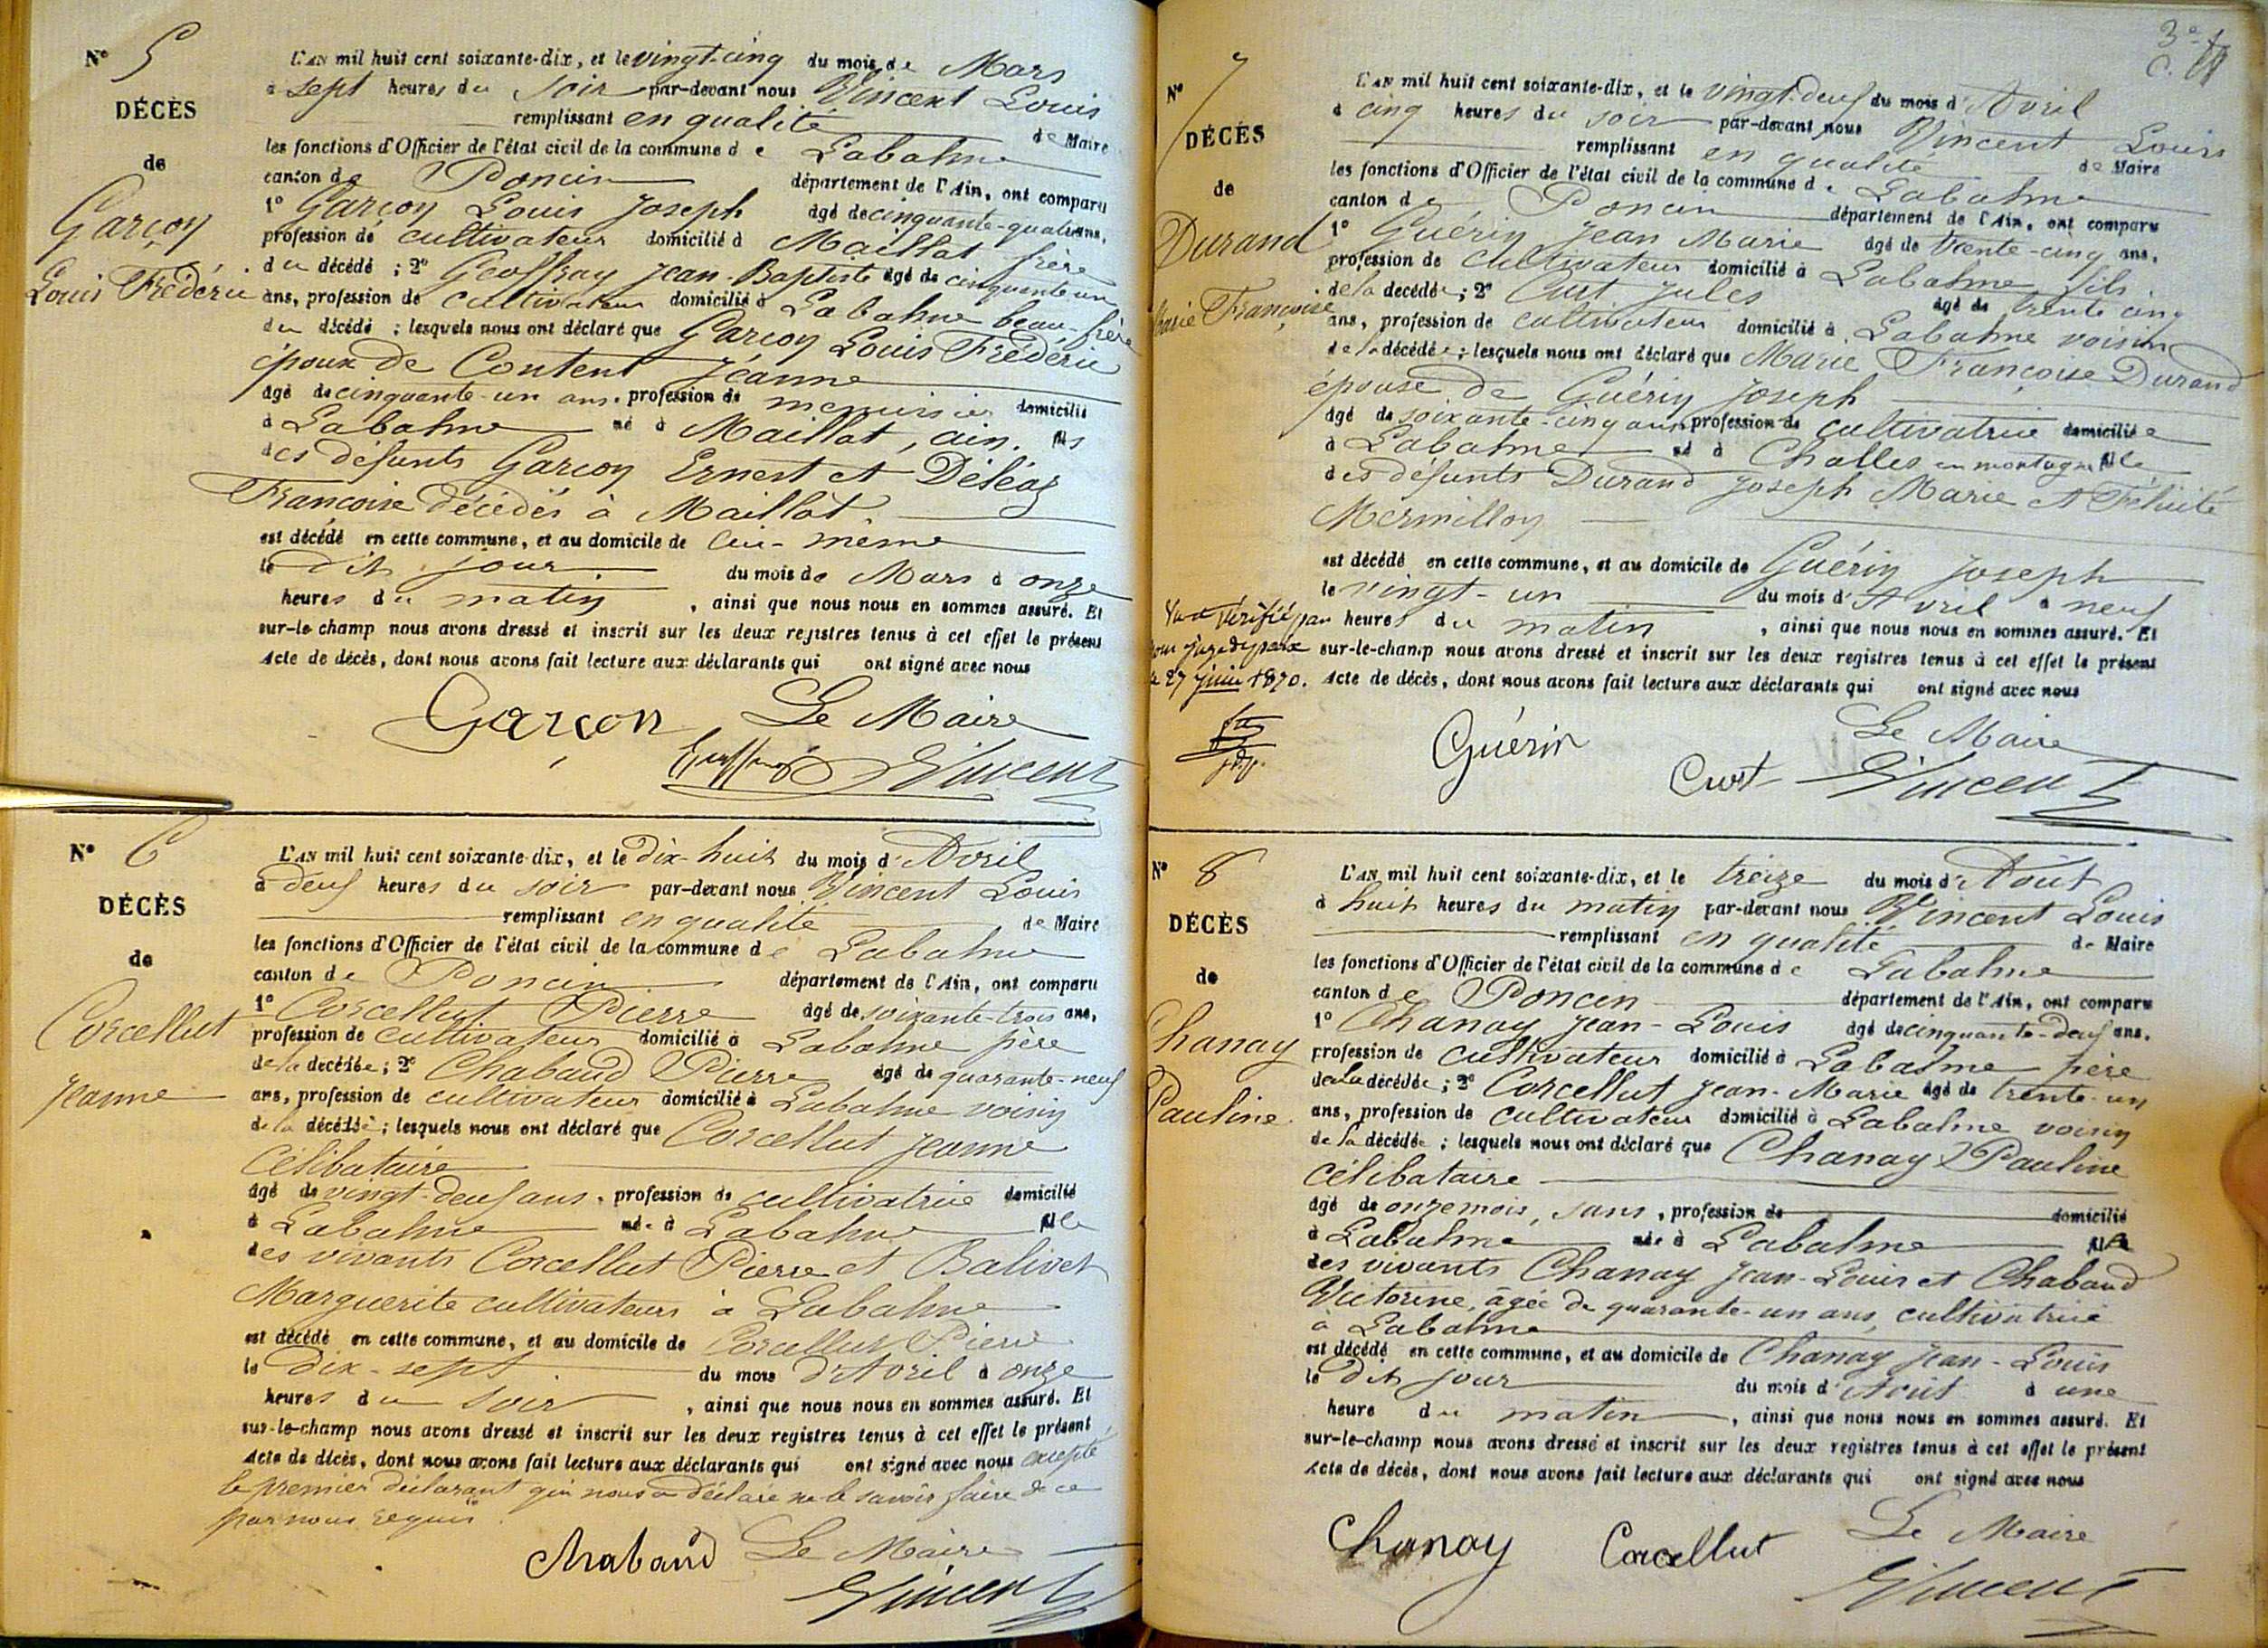 N° 5
DÉCÈS
de
Garçon
Louis Frédéric
L'AN mil huit cent soixante-dix, et le vingt-cinq du mois de Mars
à sept heures du soir par-devant nous Vincent Louis
remplissant en qualité de Maire
les fonctions d'Officier de l'état civil de la commune de Labalme
canton de Poncin département de l'Ain, ont comparu
1° Garçon Louis Joseph âgé de cinquante-quatre ans,
profession de cultivateur domicilié à Maillat frère
du décédé ; 2° Geoffray Jean-Baptiste âgé de cinquante un
ans, profession de cultivateur domicilié à Labalme beau-frère
du décédé ; lesquels nous ont déclaré que Garçon Louis Frédéric
époux de Content Jeanne
âgé de cinquante-un ans, profession de menuisier domicilié
à Labalme né à Maillat, ain. fils
des défunts Garçon Ernest et Déléaz
Françoise décédés à Maillat.
est décédé en cette commune, et au domicile de lui-même
le dit jour du mois de Mars à onze
heures du matin, ainsi que nous nous en sommes assuré. Et
sur-le-champ nous avons dressé et inscrit sur les deux registres tenus à cet effet le présent
Acte de décès, dont nous avons fait lecture aux déclarants qui ont signé avec nous
Garçon Le Maire
Geoffray Vincent
N° 6
DÉCÈS
de
Corcellut
Jeanne
L'AN mil huit cent soixante-dix, et le dix-huit du mois d'Avril
à deux heures du soir par-devant nous Vincent Louis
remplissant en qualité de Maire
les fonctions d'Officier de l'état civil de la commune de Labalme
canton de Poncin département de l'Ain, ont comparu
1° Corcellut Pierre âgé de soixante-trois ans,
profession de cultivateur domicilié à Labalme père
de la décédée ; 2° Chabaud Pierre âgé de quarante-neuf
ans, profession de cultivateur domicilié à Labalme voisin
de la décédée ; lesquels nous ont déclaré que Corcellut Jeanne
Célibataire
âgé de vingt-deux ans, profession de cultivatrice domicilié
à Labalme née à Labalme fille
des vivants Corcellut Pierre et Balivet
Marguerite cultivateurs à Labalme
est décédé en cette commune, et au domicile de Corcellut Pierre
le dix-sept du mois d'Avril à onze
heures du soir, ainsi que nous nous en sommes assuré. Et
sur-le-champ nous avons dressé et inscrit sur les deux registres tenus à cet effet le présent
Acte de décès, dont nous avons fait lecture aux déclarants qui ont signé avec nous excepté
le premier déclarant qui nous a déclaré ne le savoir faire de ce
par nous requis
Chabaud Le Maire
Vincent
3e
N° 7
DÉCÈS
de
Durand
Marie Françoise
L'AN mil huit cent soixante-dix, et le vingt-deux du mois d'Avril
à cinq heures du soir par-devant nous Vincent Louis
remplissant en qualité de Maire
les fonctions d'Officier de l'état civil de la commune de Labalme
canton de Poncin département de l'Ain, ont comparu
1° Guérin Jean Marie âgé de trente-cinq ans,
profession de cultivateur domicilié à Labalme fils
de la décédée ; 2° Curt Jules âgé de trente cinq
ans, profession de cultivateur domicilié à Labalme voisin
de la décédée ; lesquels nous ont déclaré que Marie Françoise Durand
épouse de Guérin Joseph
âgé de soixante-cinq ans, profession de cultivatrice domiciliée
à Labalme né à Challes en montagne fille
des défunts Durand Joseph Marie et Félicité
Mermillon
est décédé en cette commune, et au domicile de Guérin Joseph
le vingt-un du mois d'Avril à neuf
heures du matin, ainsi que nous nous en sommes assuré. Et
sur-le-champ nous avons dressé et inscrit sur les deux registres tenus à cet effet le présent
Acte de décès, dont nous avons fait lecture aux déclarants qui ont signé avec nous
Vu et vérifié par
juge de paix
27 juin 1870.
Guérin Le Maire
Curt Vincent
N° 8
DÉCÈS
de
Chanay
Pauline
L'AN mil huit cent soixante-dix, et le treize du mois d'Août
à huit heures du matin par-devant nous Vincent Louis
remplissant en qualité de Maire
les fonctions d'Officier de l'état civil de la commune de Labalme
canton de Poncin département de l'Ain, ont comparu
1° Chanay Jean-Louis âgé de cinquante-deux ans,
profession de cultivateur domicilié à Labalme père
de la décédée ; 2° Corcellut Jean-Marie âgé de trente-un
ans, profession de cultivateur domicilié à Labalme voisin
de la décédée ; lesquels nous ont déclaré que Chanay Pauline
célibataire
âgé de onze mois, sans, profession de domicilié
à Labalme née à Labalme fille
des vivants Chanay Jean-Louis et Chabaud
Victorine, âgée de quarante-un ans, cultivatrice
à Labalme
est décédé en cette commune, et au domicile de Chanay Jean-Louis
le dit jour du mois d'Août à une
heure du matin, ainsi que nous nous en sommes assuré. Et
sur-le-champ nous avons dressé et inscrit sur les deux registres tenus à cet effet le présent
Acte de décès, dont nous avons fait lecture aux déclarants qui ont signé avec nous
Chanay Corcellut Le Maire
Vincent